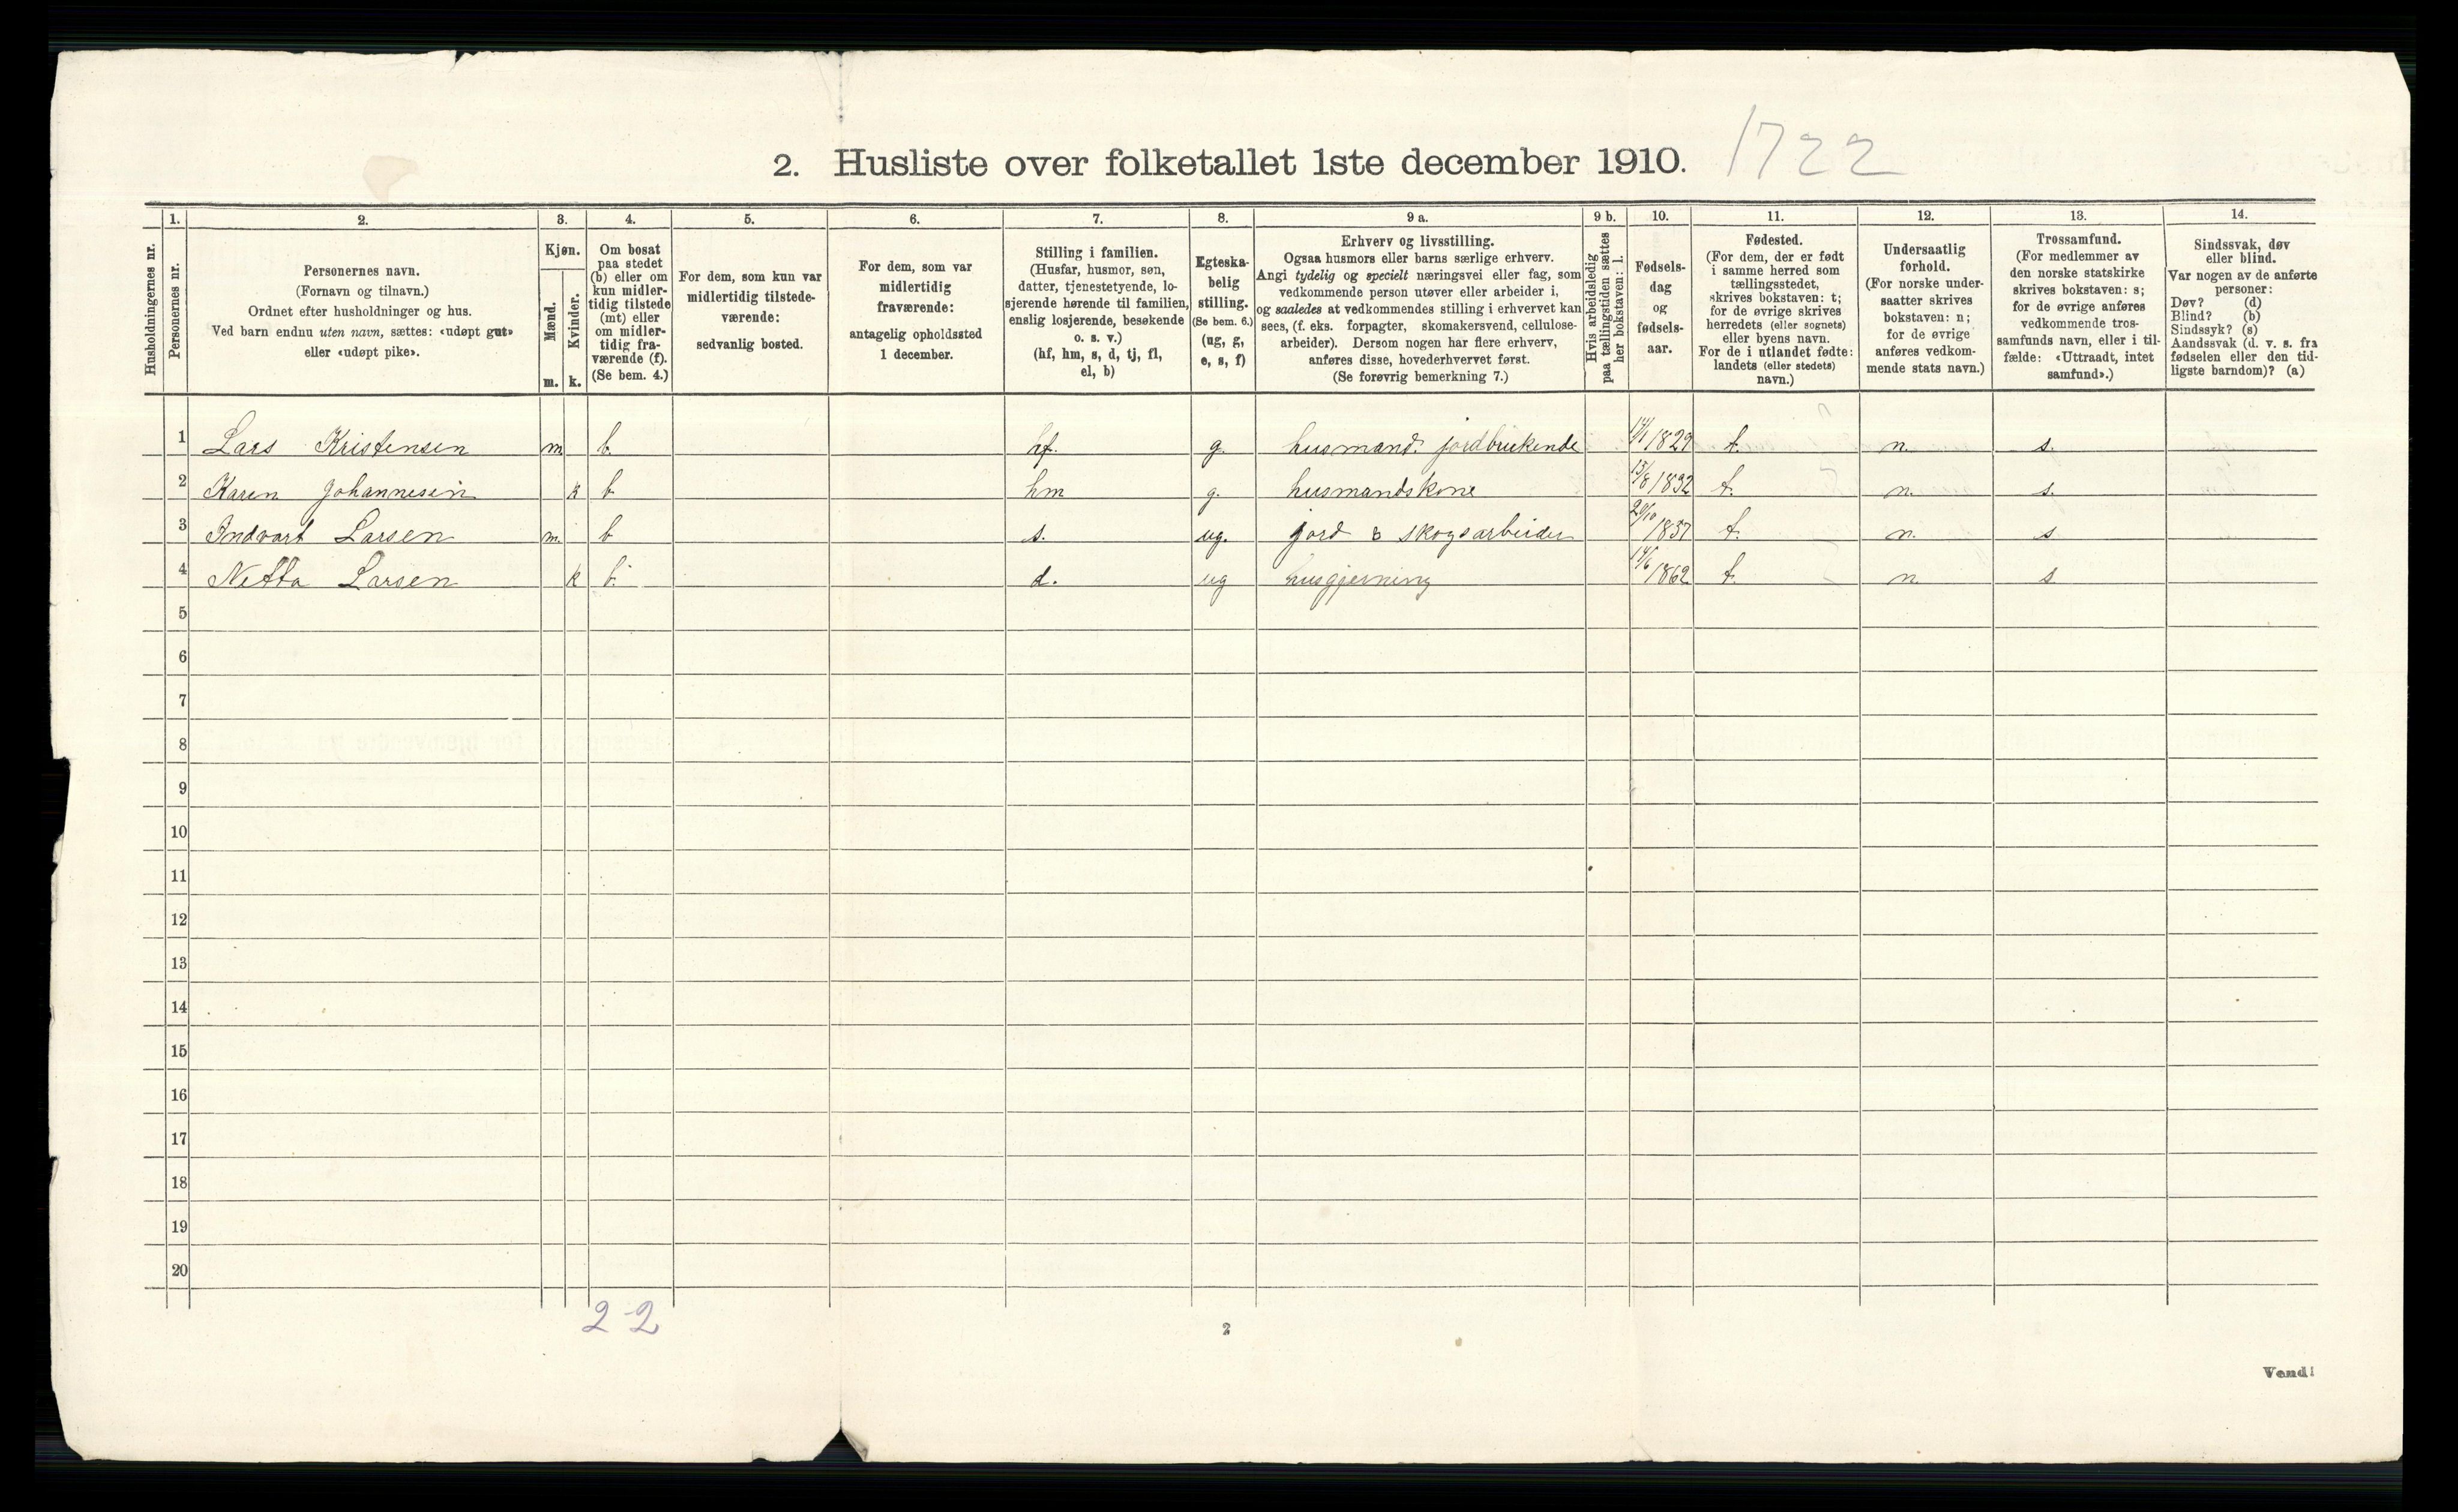 2. Husliste over folketallet 1ste december 1910. 1722
Husholdningernes nr.
1.
Personernes nr.
2.
Personernes navn.
(Fornavn og tilnavn.)
Ordnet efter husholdninger og hus.
Ved barn endnu uten navn, sættes: «udøpt gut»
eller «udøpt pike».
3.
Kjøn.
Mænd.
m.
Kvinder.
k.
4.
Om bosat
paa stedet
(b) eller om
kun midler-
tidig tilstede
(mt) eller
om midler-
tidig fra-
værende (f).
(Se bem. 4.)
5.
For dem, som kun var
midlertidig tilstede-
værende:
sedvanlig bosted.
6.
For dem, som var
midlertidig
fraværende:
antagelig opholdssted
1 december.
7.
Stilling i familien.
(Husfar, husmor, søn,
datter, tjenestetyende, lo-
sjerende hørende til familien,
enslig losjerende, besøkende
o. s. v.)
(hf, hm, s, d, tj, fl,
el, b)
8.
Egteska-
belig
stilling.
(Se bem. 6.)
(ug, g,
e, s, f)
9 a.
Erhverv og livsstilling.
Ogsaa husmors eller barns særlige erhverv.
Angi tydelig og specielt næringsvei eller fag, som
vedkommende person utøver eller arbeider i,
og saaledes at vedkommendes stilling i erhvervet kan
sees, (f. eks. forpagter, skomakersvend, cellulose-
arbeider). Dersom nogen har flere erhverv,
anføres disse, hovederhvervet først.
(Se forøvrig bemerkning 7.)
9 b.
Hvis arbeidsledig
paa tællingstiden sættes
her bokstaven: l.
10.
Fødsels-
dag
og
fødsels-
aar.
11.
Fødested.
(For dem, der er født
i samme herred som
tællingsstedet,
skrives bokstaven: t;
for de øvrige skrives
herredets (eller sognets)
eller byens navn.
For de i utlandet fødte:
landets (eller stedets)
navn.)
12.
Undersaatlig
forhold.
(For norske under-
saatter skrives
bokstaven: n;
for de øvrige
anføres vedkom-
mende stats navn.)
13.
Trossamfund.
(For medlemmer av
den norske statskirke
skrives bokstaven: s;
for de øvrige anføres
vedkommende tros-
samfunds navn, eller i til-
fælde: «Uttraadt, intet
samfund».)
14.
Sindssvak, døv
eller blind.
Var nogen av de anførte
personer:
Døv? (d)
Blind? (b)
Sindssyk? (s)
Aandssvak (d. v. s. fra
fødselen eller den tid-
ligste barndom)? (a)
1 Lars Kristensen m. b. hf. g. husmand. jordbrukende 1829 t. n. s.
2 Karen Johannesen k b hm g. husmandskone 13/8 1832 t. n. s.
3 Indvart Larsen m. b s. ug. jord & skogsarbeider 20/10 1837 t. n. s
4 Netta Larsen k b. d. ug husgjerning 14/6 1862 t. n. s
5
6
7
8
9
10
11
12
13
14
15
16
17
18
19
20
2-2
2
Vend!